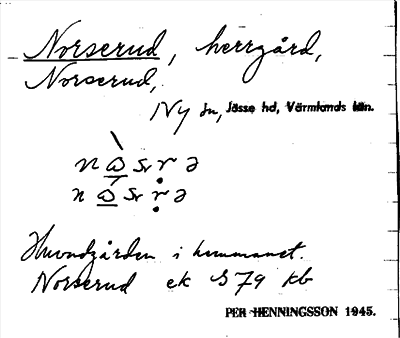 Norserud, herrgård,
Norserud,
Ny sn, Jösse hd, Värmlands län.
Huvudgården i hemmanet.
Norserud ek S 79 kb
PER HENNINGSSON 1945.